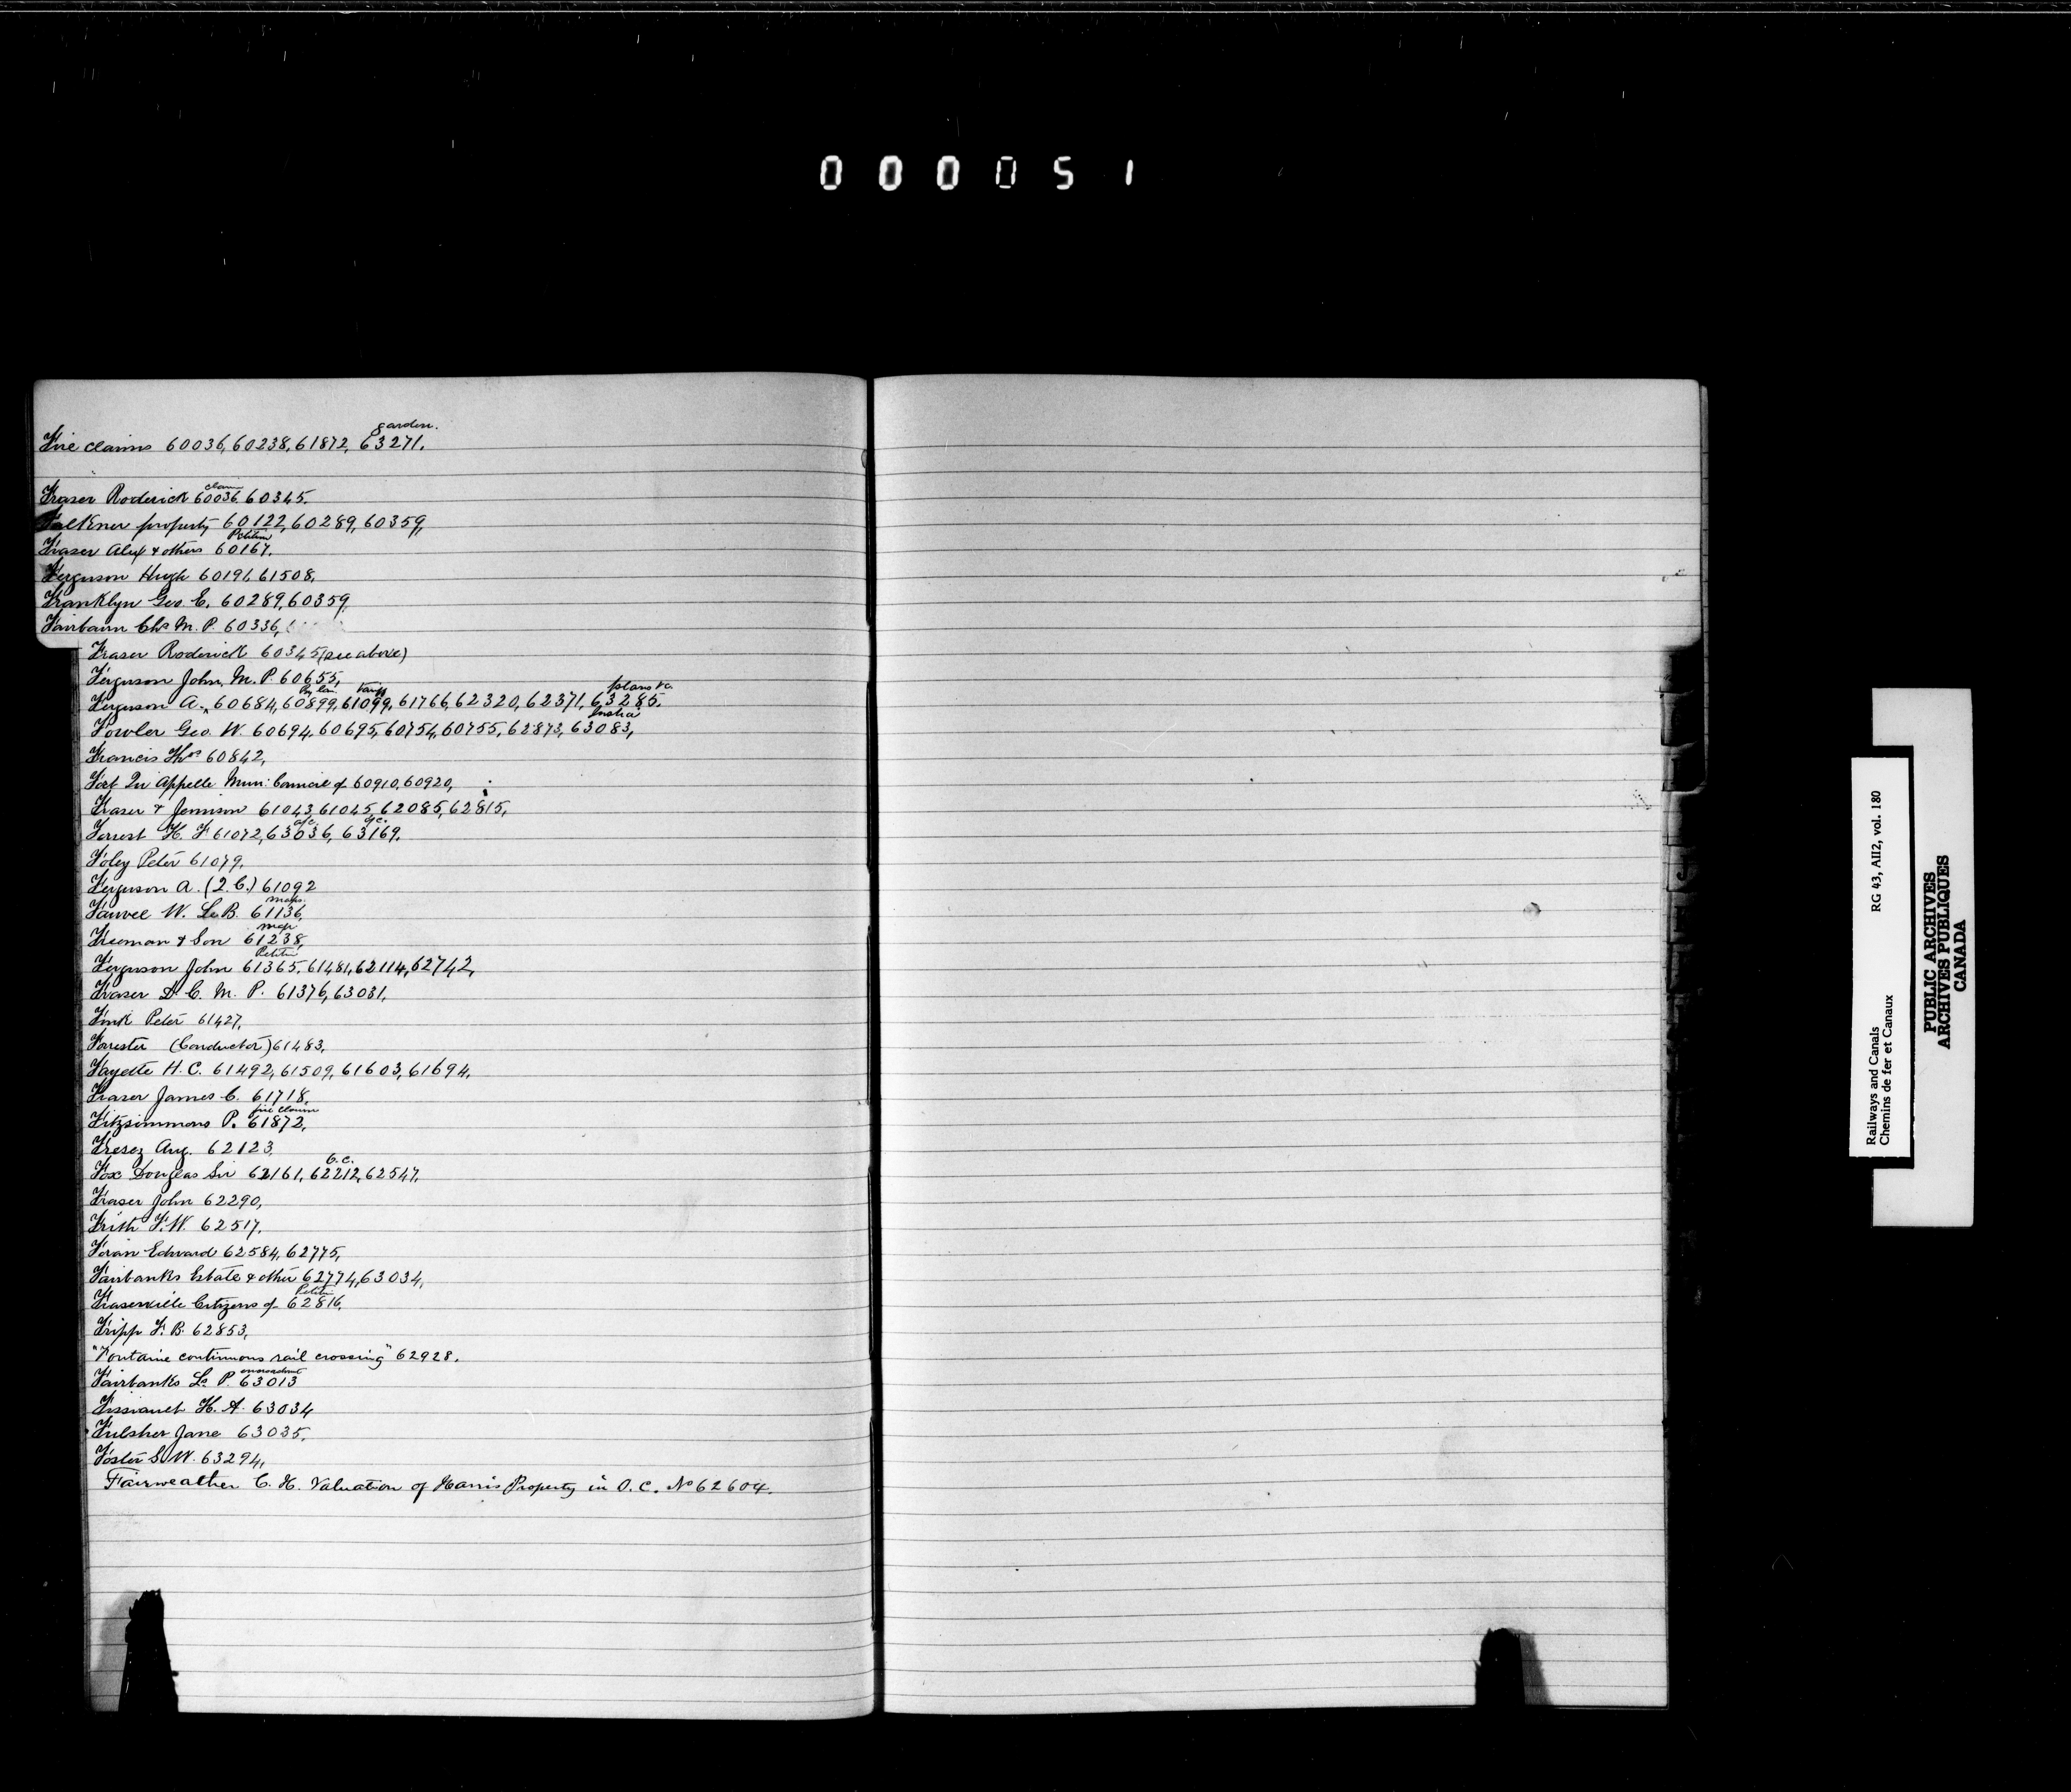 000051
garden.
Fire claims 60036, 60238, 61872, 63271.
claim
Fraser Roderick 60036, 60345.
Falkner property 60122, 60289, 60359,
Petition
Fraser Alex & others 60167.
Ferguson Hugh 60191, 61508,
Franklyn Geo. E. 60289, 60359,
Fairbairn Chs M. P. 60336,
Fraser Roderick 60345 (see above)
Ferguson John, M. P. 60655,
plans &c.
Ferguson A. 60684, 60899, 61099, 61766, 62320, 62371, 63285.
Fowler Geo. W. 60694, 60695, 60754, 60755, 62873, 63083,
Francis Thos 60842,
Fort Qu'Appelle Mun: Council of 60910, 60920,
Fraser & Jennison 61043, 61045, 62085, 62815,
a/c. a/c.
Forrest H. F. 61072, 63036, 63169.
Foley Peter 61079.
Ferguson A. (Q.C.) 61092
maps.
Fauvel W. LeB. 61136,
map
Freeman & Son 61238,
Petitn
Ferguson John 61365, 61481, 62114, 62742,
Fraser D. C. M. P. 61376, 63031,
Fink Peter 61427,
Forrester (Conductor) 61483,
Fayette H. C. 61492, 61509, 61603, 61694,
Fraser James C. 61718,
fire claim
Fitzsimmons P. 61872,
Aug. 62123,
O.C.
Fox Douglas Sir 62161, 62212, 62547,
Fraser John 62290,
Frith F. W. 62517,
Foran Edward 62584, 62775,
Fairbanks Estate & other 62774, 63034,
Petitn
Fraserville Citizens of 62816,
Fripp F. B. 62853,
"Fontaine continuous rail crossing" 62928.
Fairbanks L. P. 63013
H. A. 63034
Fulsher Jane 63035,
Foster S. W. 63294,
Fairweather C. H. Valuation of Harris Property in O. C. No 62604.
Railways and Canals RG 43, AII2, vol. 180
Chemins de fer et Canaux
PUBLIC ARCHIVES
ARCHIVES PUBLIQUES
CANADA